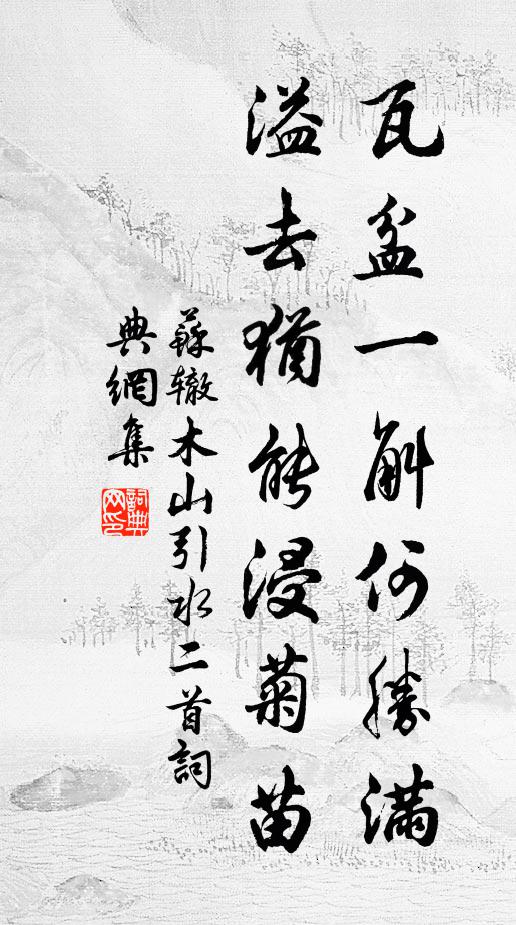 瓦盆一斛何勝滿
溢去猶能浸菊苗
蘇辙木山引水二首詞
典網集
詞典网印